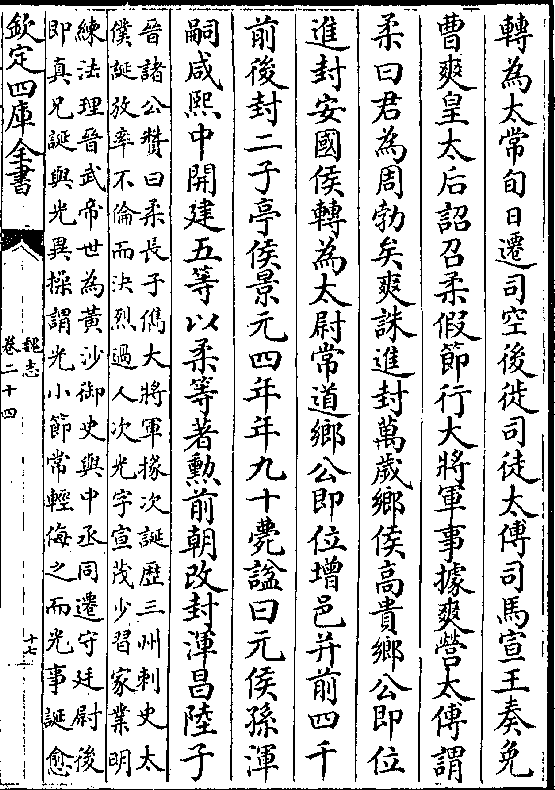 轉為太常旬日遷司空後徙司徒太傅司馬宣王奏免
曹爽皇太后詔召柔假節行大將軍事據爽營太傅謂
柔曰君為周勃矣爽誅進封萬歲鄉侯高貴鄉公即位
進封安國侯轉為太尉常道鄉公即位增邑并前四千
前後封二子亭侯景元四年年九十薨諡曰元侯孫渾
嗣咸熙中開建五等以柔等著勲前朝改封渾昌陸子
晉諸公贊曰柔長子儁大將軍掾次誕歷三州刺史太
僕誕放率不倫而決烈過人次光字宣茂少習家業明
練法理晉武帝世為黃沙御史與中丞同遷守廷尉後
即真兄誕與光異操謂光小節常輕侮之而光事誕愈
欽定四庫全書
魏志
卷二十四
十七